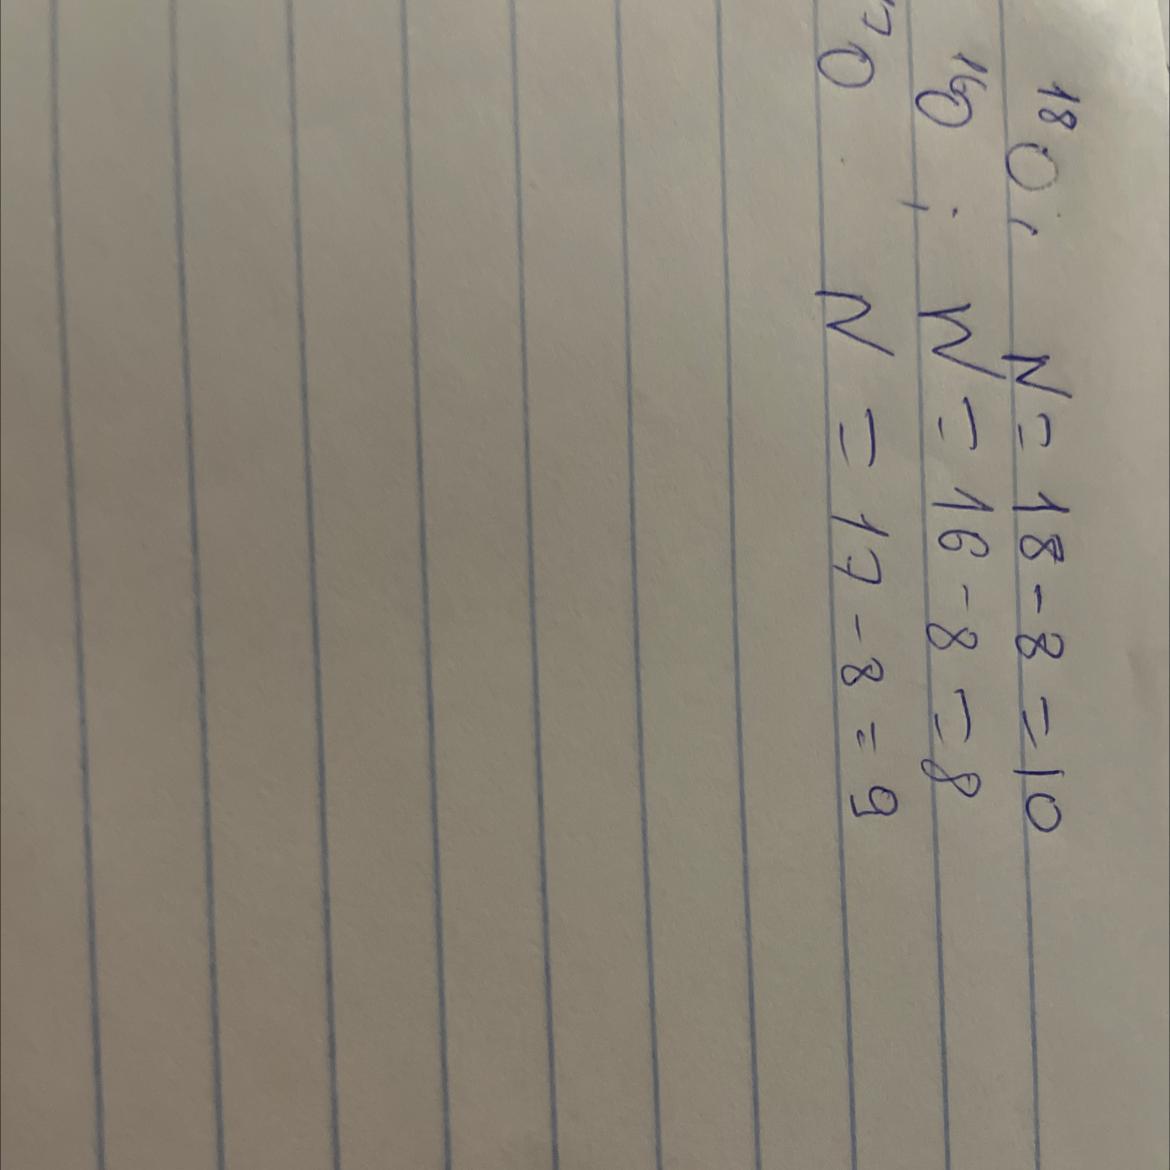 ¹⁸O; N = 18 - 8 = 10
¹⁶O; N = 16 - 8 = 8
¹⁷O N = 17 - 8 = 9